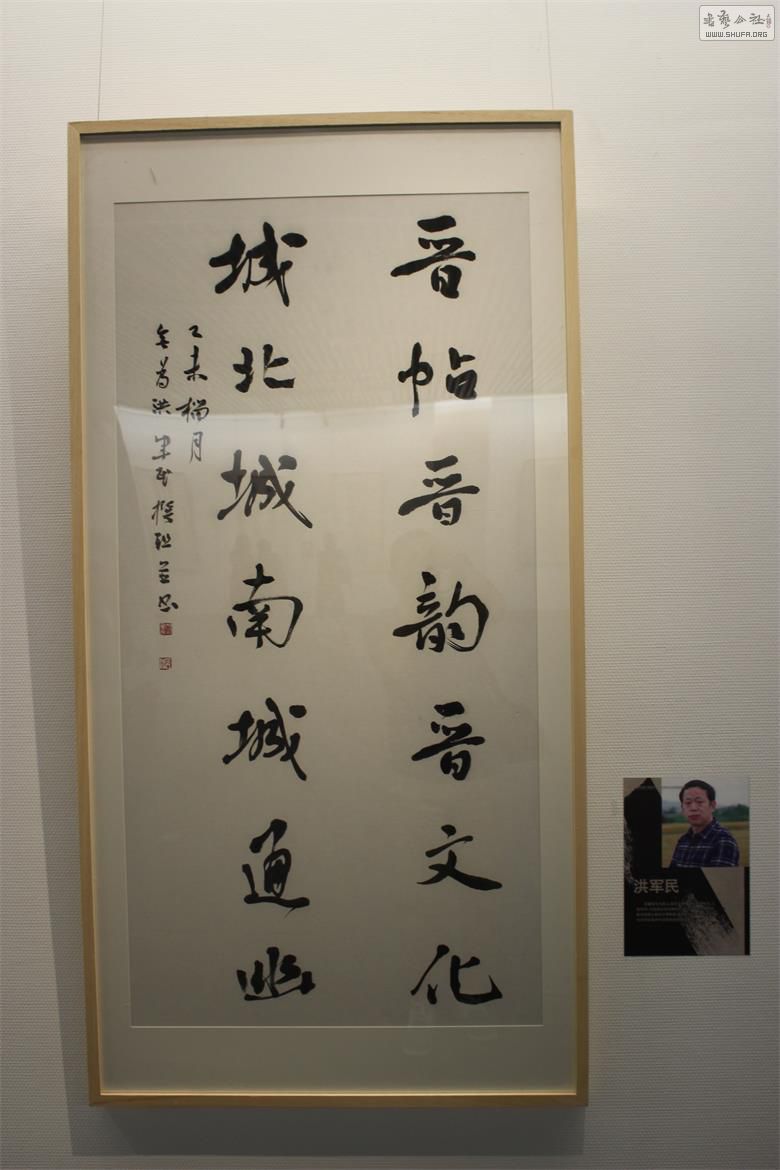 晋帖晋韵晋文化
城北城南城通幽
乙未
月
洪军民撰联并书
洪军民
書藝公社
WWW.SHUFA.ORG